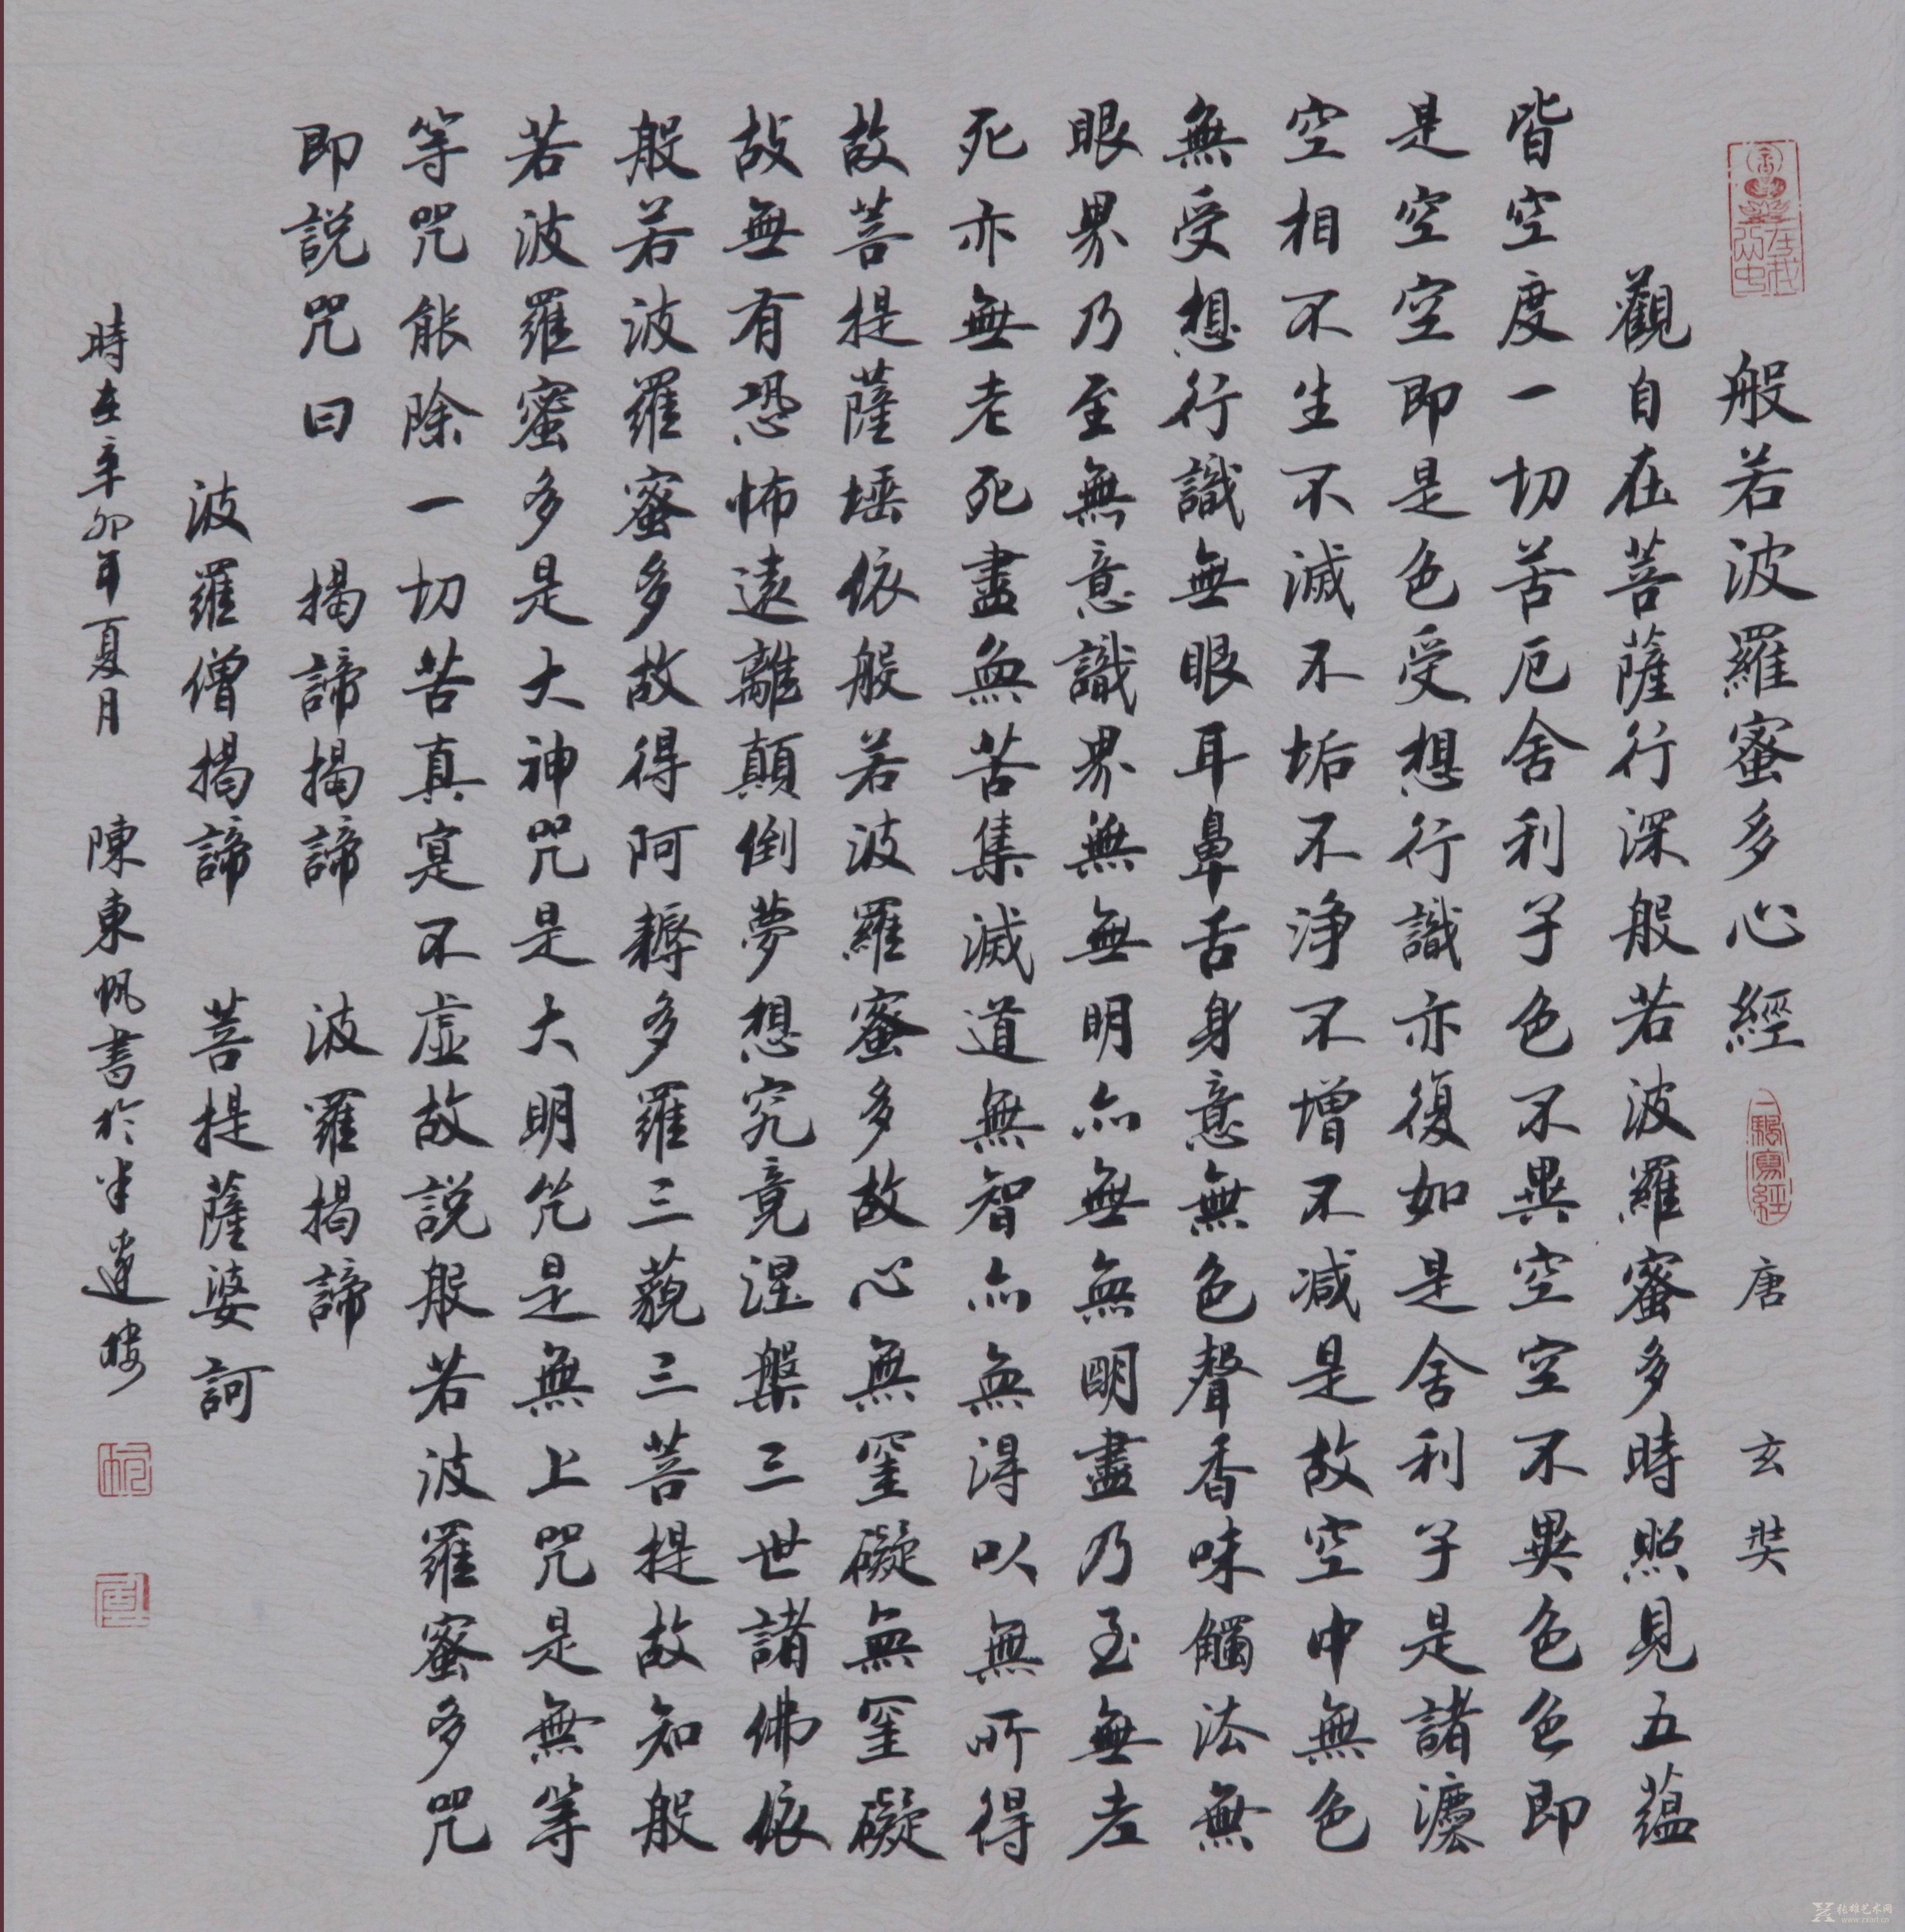 般若波羅蜜多心經 唐 玄奘
觀自在菩薩行深般若波羅蜜多時照見五蘊
皆空度一切苦厄舍利子色不異空空不異色色即
是空空即是色受想行識亦復如是舍利子是諸灋
空相不生不滅不垢不淨不增不減是故空中無色
無受想行識無眼耳鼻舌身意無色聲香味觸法無
眼界乃至無意識界無無明亦無無明盡乃至無老
死亦無老死盡無苦集滅道無智亦無得以無所得
故菩提薩埵依般若波羅蜜多故心無罣礙無罣礙
故無有恐怖遠離顛倒夢想究竟涅槃三世諸佛依
般若波羅蜜多故得阿耨多羅三藐三菩提故知般
若波羅蜜多是大神咒是大明咒是無上咒是無等
等咒能除一切苦真寔不虛故説般若波羅蜜多咒
即説咒曰 揭諦揭諦 波羅揭諦
波羅僧揭諦 菩提薩婆訶
時在辛卯年夏月 陳東帆書於半邊樓
张雄艺术网
www.zxart.cn